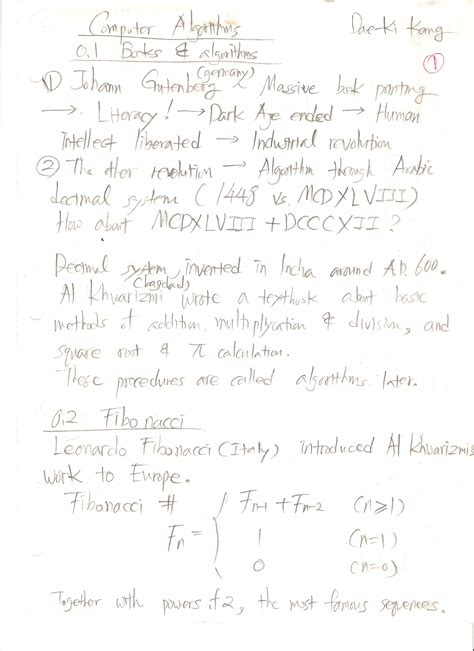 Computer Algorithms Dae-Ki Kang
0.1 Books & algorithms ①
① Johann Gutenberg (germany) Massive book printing
→ Literacy! → Dark Age ended → Human
intellect liberated → Industrial revolution
② The other revolution → Algorithm through Arabic
decimal system (1448 vs. MCDXLVIII)
How about MCDXLVIII + DCCCXII ?
Decimal system, invented in India around A.D. 600.
Al Khwarizmi (bagdad) wrote a textbook about basic
methods of addition, multiplycation & division, and
square root & π calculation.
These procedures are called algorithms later.
0.2 Fibonacci
Leonardo Fibonacci (Italy) introduced Al Khwarizmis
work to Europe.
Fibonacci # Fn-1 + Fn-2 (n≥1)
Fn = { 1 (n=1)
0 (n=0)
Together with powers of 2, the most famous sequences.